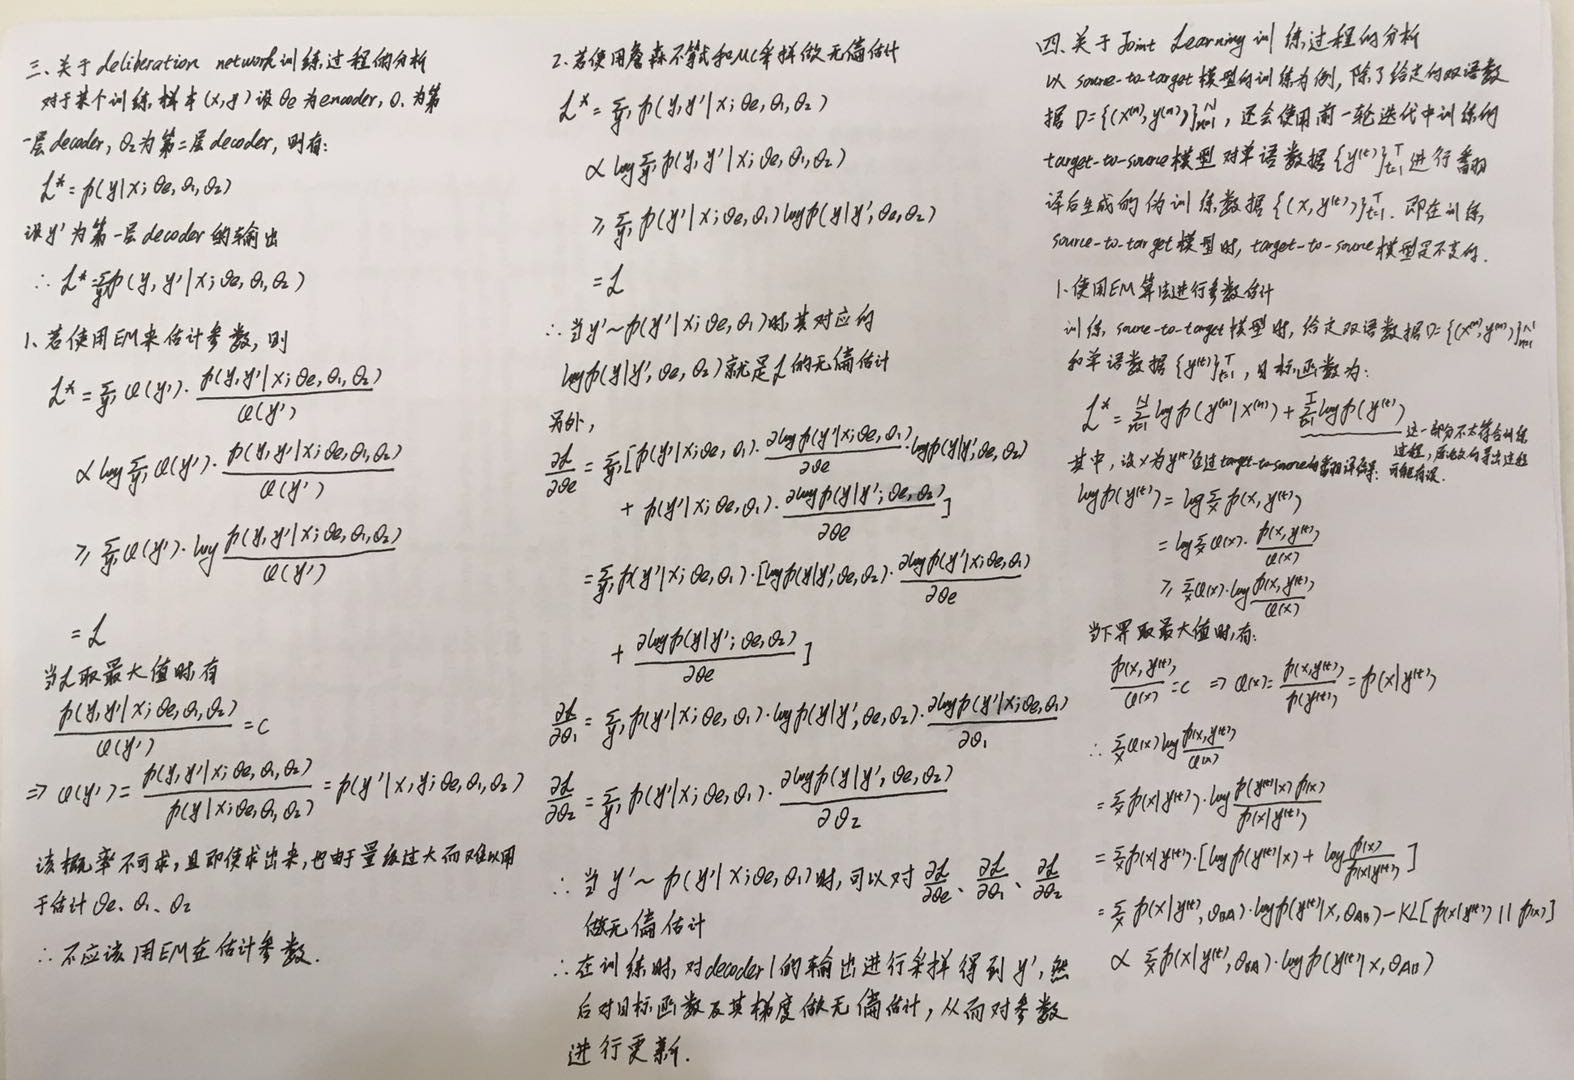 三、关于deliberation network训练过程的分析
对于某个训练样本(x,y)设θe为encoder, θ1为第
一层decoder, θ2为第二层decoder, 则有:
L* = p(y|x;θe,θ1,θ2)
设y'为第一层decoder的输出
∴ L* = Σy' p(y,y'|x;θe,θ1,θ2)
1、若使用EM来估计参数, 则
L* = Σy' Q(y')· p(y,y'|x;θe,θ1,θ2) / Q(y')
∝ log Σy' Q(y')· p(y,y'|x;θe,θ1,θ2) / Q(y')
≥ Σy' Q(y')· log p(y,y'|x;θe,θ1,θ2) / Q(y')
= L
当L取最大值时,有
p(y,y'|x;θe,θ1,θ2) / Q(y') = c
⇒ Q(y') = p(y,y'|x;θe,θ1,θ2) / p(y|x;θe,θ1,θ2) = p(y'|x,y;θe,θ1,θ2)
该概率不可求, 且即使求出来, 也由于量级过大而难以用
于估计θe、θ1、θ2
∴ 不应该用EM在估计参数.
2.若使用詹森不等式和MC采样做无偏估计
L* = Σy' p(y,y'|x;θe,θ1,θ2)
∝ log Σy' p(y,y'|x;θe,θ1,θ2)
≥ Σy' p(y'|x;θe,θ1) log p(y|y',θe,θ2)
= L
∴ 当y'~p(y'|x;θe,θ1)时, 其对应的
log p(y|y',θe,θ2)就是L的无偏估计
另外,
∂L/∂θe = Σy' [p(y'|x;θe,θ1)· ∂log p(y'|x;θe,θ1)/∂θe ·log p(y|y',θe,θ2)
+ p(y'|x;θe,θ1)· ∂log p(y|y';θe,θ2)/∂θe ]
= Σy' p(y'|x;θe,θ1)·[log p(y|y',θe,θ2)· ∂log p(y'|x;θe,θ1)/∂θe
+ ∂log p(y|y';θe,θ2)/∂θe ]
∂L/∂θ1 = Σy' p(y'|x;θe,θ1)·log p(y|y',θe,θ2)· ∂log p(y'|x;θe,θ1)/∂θ1
∂L/∂θ2 = Σy' p(y'|x;θe,θ1)· ∂log p(y|y',θe,θ2)/∂θ2
∴ 当y'~p(y'|x;θe,θ1)时, 可以对∂L/∂θe、∂L/∂θ1、∂L/∂θ2
做无偏估计
∴在训练时, 对decoder1的输出进行采样得到y', 然
后对目标函数及其梯度做无偏估计, 从而对参数
进行更新.
四.关于Joint Learning训练过程的分析
以source-to-target模型的训练为例, 除了给定的双语数
据D={(x⁽ⁿ⁾,y⁽ⁿ⁾)}ₙ₌₁ᴺ, 还会使用前一轮迭代中训练的
target-to-source模型对单语数据{y⁽ᵗ⁾}ₜ₌₁ᵀ进行翻
译后生成的伪训练数据{(x,y⁽ᵗ⁾)}ₜ₌₁ᵀ. 即在训练
source-to-target模型时, target-to-source模型是不变的.
1.使用EM算法进行参数估计
训练source-to-target模型时, 给定双语数据D={(x⁽ⁿ⁾,y⁽ⁿ⁾)}ₙ₌₁ᴺ
和单语数据{y⁽ᵗ⁾}ₜ₌₁ᵀ, 目标函数为:
L* = Σₙ₌₁ᴺ log p(y⁽ⁿ⁾|x⁽ⁿ⁾) + Σₜ₌₁ᵀ log p(y⁽ᵗ⁾)
这一部分不太符合训练
过程, 原论文的导出过程
可能有误.
其中, 设x为y⁽ᵗ⁾经过target-to-source的翻译结果:
log p(y⁽ᵗ⁾) = log Σx p(x,y⁽ᵗ⁾)
= log Σx Q(x)· p(x,y⁽ᵗ⁾)/Q(x)
≥ Σx Q(x)·log p(x,y⁽ᵗ⁾)/Q(x)
当下界取最大值时,有:
p(x,y⁽ᵗ⁾)/Q(x) = c ⇒ Q(x) = p(x,y⁽ᵗ⁾)/p(y⁽ᵗ⁾) = p(x|y⁽ᵗ⁾)
∴ Σx Q(x) log p(x,y⁽ᵗ⁾)/Q(x)
= Σx p(x|y⁽ᵗ⁾)·log p(y⁽ᵗ⁾|x)p(x)/p(x|y⁽ᵗ⁾)
= Σx p(x|y⁽ᵗ⁾)·[log p(y⁽ᵗ⁾|x) + log p(x)/p(x|y⁽ᵗ⁾)]
= Σx p(x|y⁽ᵗ⁾,θBA)·log p(y⁽ᵗ⁾|x,θAB) − KL[p(x|y⁽ᵗ⁾)||p(x)]
∝ Σx p(x|y⁽ᵗ⁾,θBA)·log p(y⁽ᵗ⁾|x,θAB)